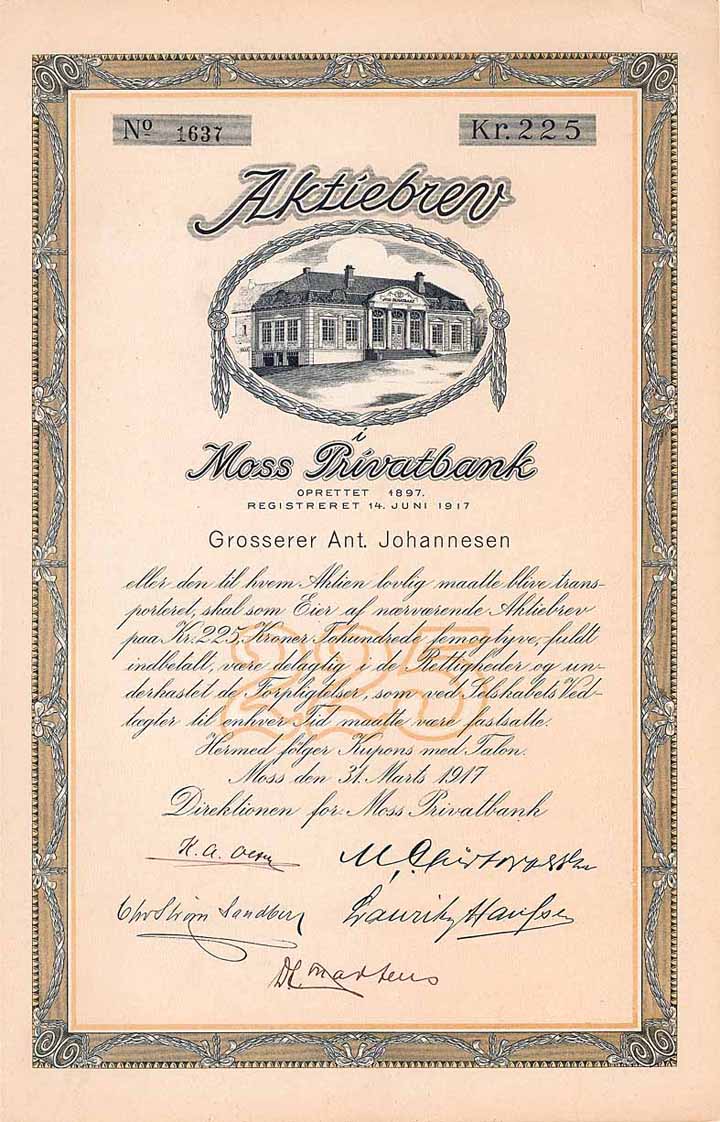 No 1637 Kr. 225
Aktiebrev
MOSS PRIVATBANK
i
Moss Privatbank
OPRETTET 1897.
REGISTRERET 14. JUNI 1917
Grosserer Ant. Johannesen
eller den til hvem Aktien lovlig maatte blive trans-
porteret, skal som Eier af nærværende Aktiebrev
paa Kr. 225, Kroner Tohundrede femogtyve, fuldt
indbetalt, være delagtig i de Rettigheder og un-
derkastet de Forpligtelser, som ved Selskabets Ved-
tægter til enhver Tid maatte være fastsatte.
225
Hermed følger Kupons med Talon.
Moss den 31. Marts 1917
Direktionen for Moss Privatbank
K. A.
Chr Strøm Sandberg Lauritz Hansen
Martens